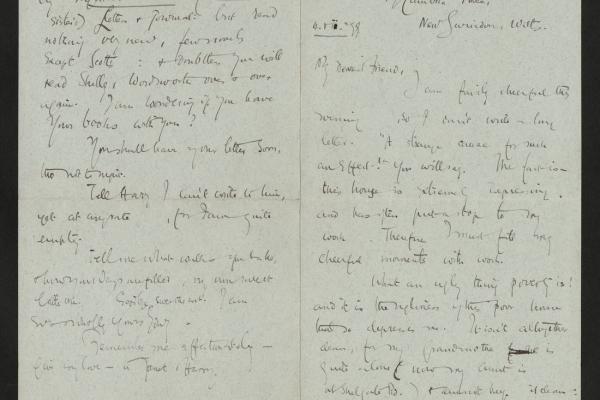 sister) Letters & Journals but read
nothing very new, few novels
except Scott : & doubtless you will
read Shelley, Wordsworth over & over
again. I am wondering if you have
your books with you?
You shall have your letter soon,
tho not tonight.
Tell Harry I can't write to him,
yet at any rate, for I am quite
empty.
Tell me what walks you take,
& how your days are filled, my own sweet
little one. Goodbye, sweetheart. I am
ever & wholly yours
Remember me affectionately —
give my love — to Janet & Harry.
New Swindon, Wilts.
My Dearest Friend,
I am fairly cheerful this
evening, so I can't write a long
letter. "A strange cause for such
an effect!" you will say. The fact is
this house is extremely depressing,
and has often put a stop to my
work. Therefore I must fill my
cheerful moments with work.
What an ugly thing poverty is!
and it is the ugliness of this poor house
that so depresses me. It isn't altogether
clean, for my grandmother is
quite alone (now my aunt is
at Shelgate Rd.) & cannot keep it clean: